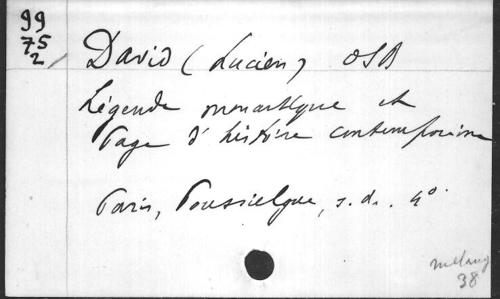 99
75
2
David (Lucien) OSB
Légende monastique et
Page d'histoire contemporaine
Paris, Poussielgue, s.d. 4°.
mélang
38